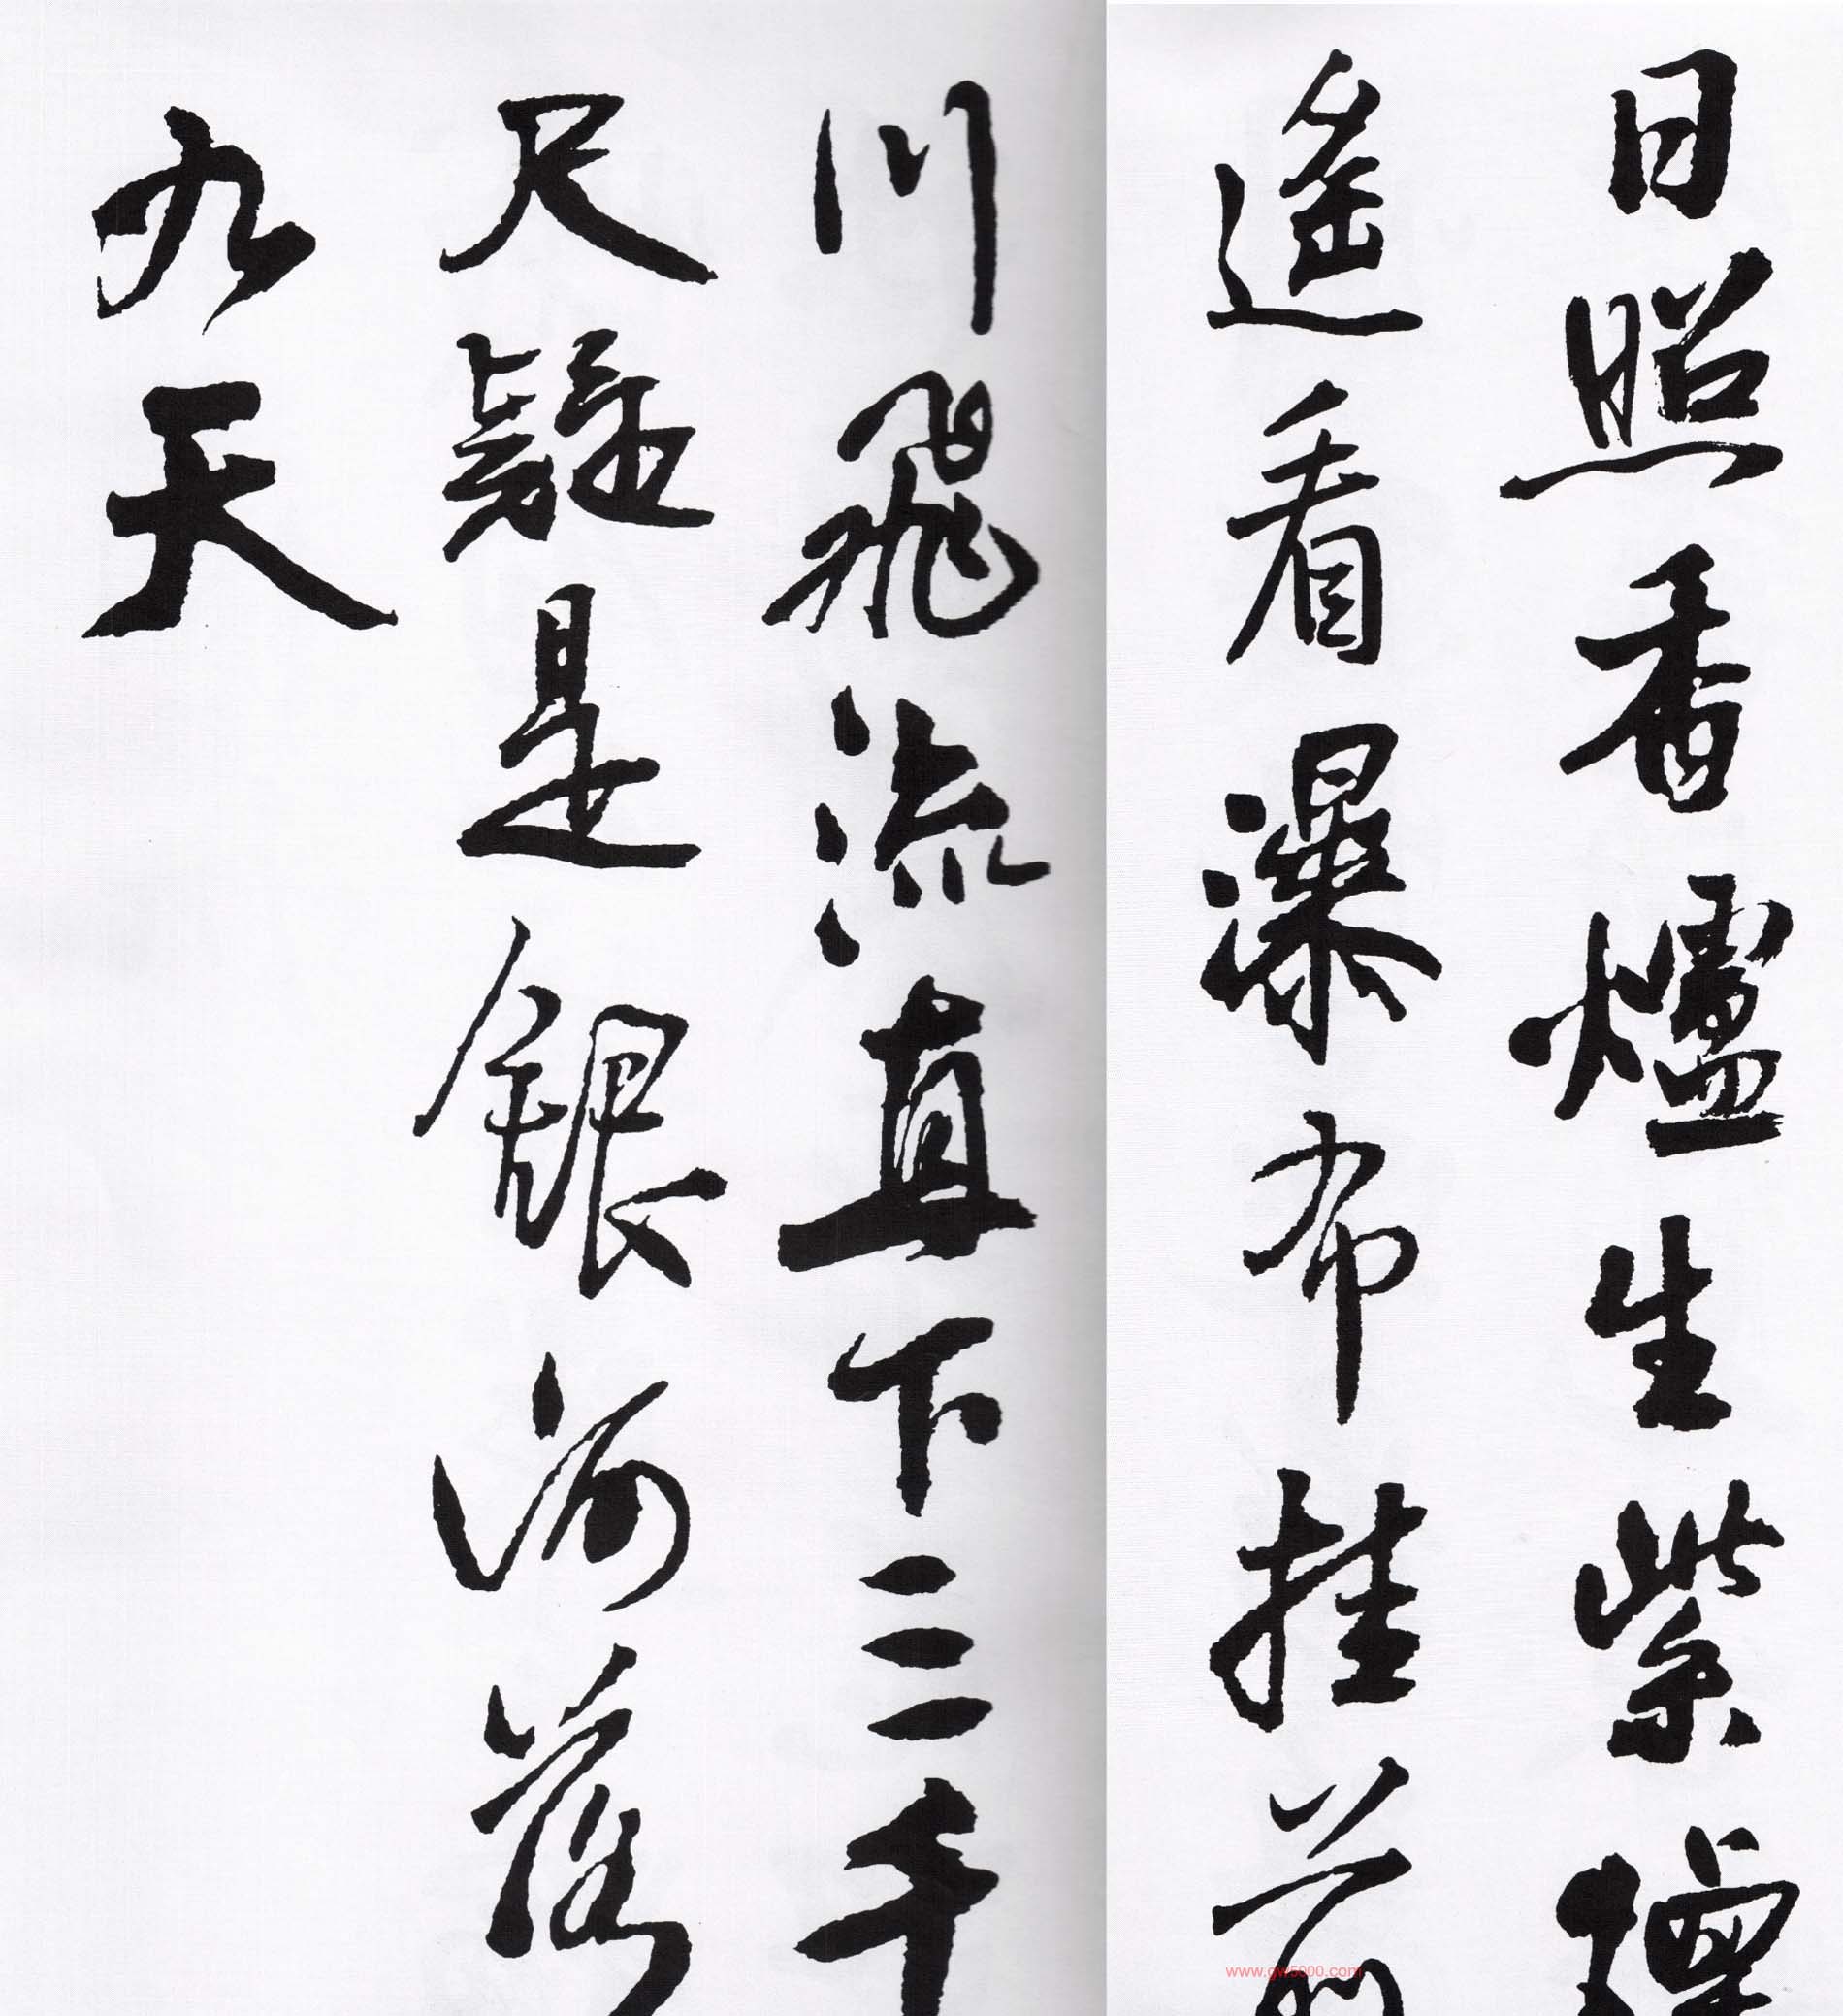 日照香爐生紫煙
遙看瀑布挂前
川飛流直下三千
尺疑是銀河落
九天
www.gw5000.com